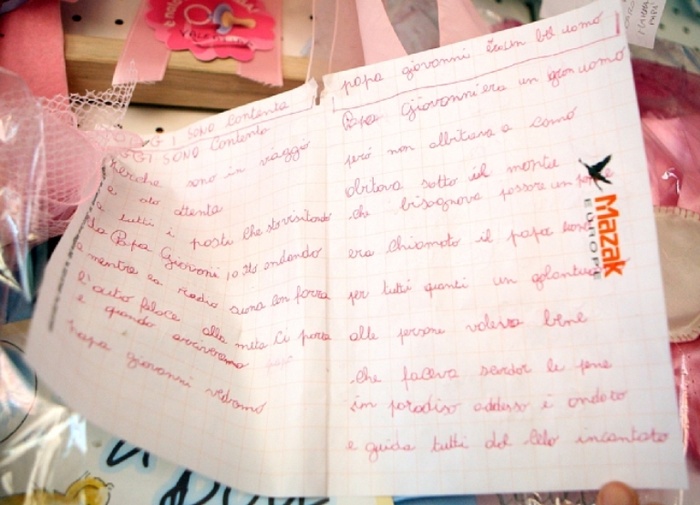 OGGI SONO Contenta
OGGI SONO Contento
Perche sono in viaggio
e sto attenta
a tutti i posti che sto visitando
da Papa Giovanni io sto andando
e mentre la radio suona con forza
l'auto feloce alla meta ci porta
e quando arriveremo
papa giovanni vedremo
papa giovanni era un bel uomo
Papa Giovanni era un gran uomo
però non abitava a Como
abitava sotto il monte
che bisognava passare un ponte
era chiamato il papa bono
per tutti quanti un galantuo
alle persone voleva bene
che faceva scordar le pene
in paradiso addesso è andato
e guida tutti dal cielo incantato
Mazak
EUROPE